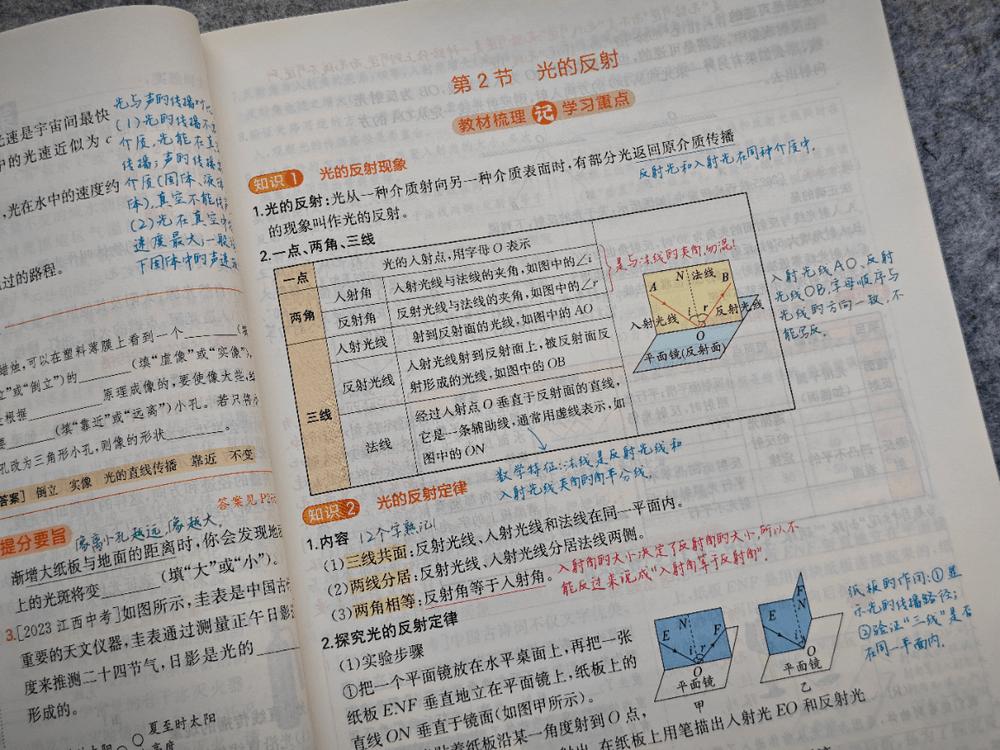 光速是宇宙间最快
中的光速近似为 c
,光在水中的速度约
过的路程。
光与声的传播
(1)光的传播不
介质,光能在真
传播;声的传播
介质(固体、液
体),真空不能传
(2)光在真空中
速度最大,一般
下固体中的声速
蜡烛,可以在塑料薄膜上看到一个
立”或“倒立”)的________(填“虚像”或“实像”),
根据________原理成像的,要使像大些,
要________(填“靠近”或“远离”)小孔。若只将
孔改为三角形小孔,则像的形状________。
答案] 倒立 实像 光的直线传播 靠近 不变
答案见 P2
提分要旨
像离小孔越远,像越大。
渐增大纸板与地面的距离时,你会发现地
上的光斑将变________(填“大”或“小”)。
3.[2023 江西中考]如图所示,圭表是中国古
重要的天文仪器,圭表通过测量正午日影
度来推测二十四节气,日影是光的________
形成的。
夏至时太阳
高度
第2节 光的反射
教材梳理 记 学习重点
知识1 光的反射现象
1.光的反射:光从一种介质射向另一种介质表面时,有部分光返回原介质传播
的现象叫作光的反射。
反射光和入射光在同种介质中。
2.一点、两角、三线
一点 光的入射点,用字母 O 表示
两角 入射角 入射光线与法线的夹角,如图中的∠i
反射角 反射光线与法线的夹角,如图中的∠r
是与法线的夹角,勿混!
三线 入射光线 射到反射面的光线,如图中的 AO
反射光线 入射光线射到反射面上,被反射面反
射形成的光线,如图中的 OB
法线 经过入射点 O 垂直于反射面的直线,
它是一条辅助线,通常用虚线表示,如
图中的 ON
A N 法线 B
入射光线 i r 反射光线
O
平面镜(反射面)
入射光线AO、反射
光线OB,字母顺序与
光线的方向一致,不
能写反。
数学特征:法线是反射光线和
入射光线夹角的角平分线。
知识2 光的反射定律
1.内容 12个字熟记!
(1)三线共面:反射光线、入射光线和法线在同一平面内。
(2)两线分居:反射光线、入射光线分居法线两侧。
(3)两角相等:反射角等于入射角。
入射角的大小决定了反射角的大小,所以不
能反过来说成“入射角等于反射角”。
2.探究光的反射定律
(1)实验步骤
①把一个平面镜放在水平桌面上,再把一张
纸板 ENF 垂直地立在平面镜上,纸板上的
直线 ON 垂直于镜面(如图甲所示)。
贴着纸板沿某一角度射到 O 点,
射出,在纸板上用笔描出入射光 EO 和反射光
E N F
i r
O
平面镜
甲
F
E N
i r
O
平面镜
乙
纸板的作用:①显
示光的传播路径;
②验证“三线”是否
在同一平面内。